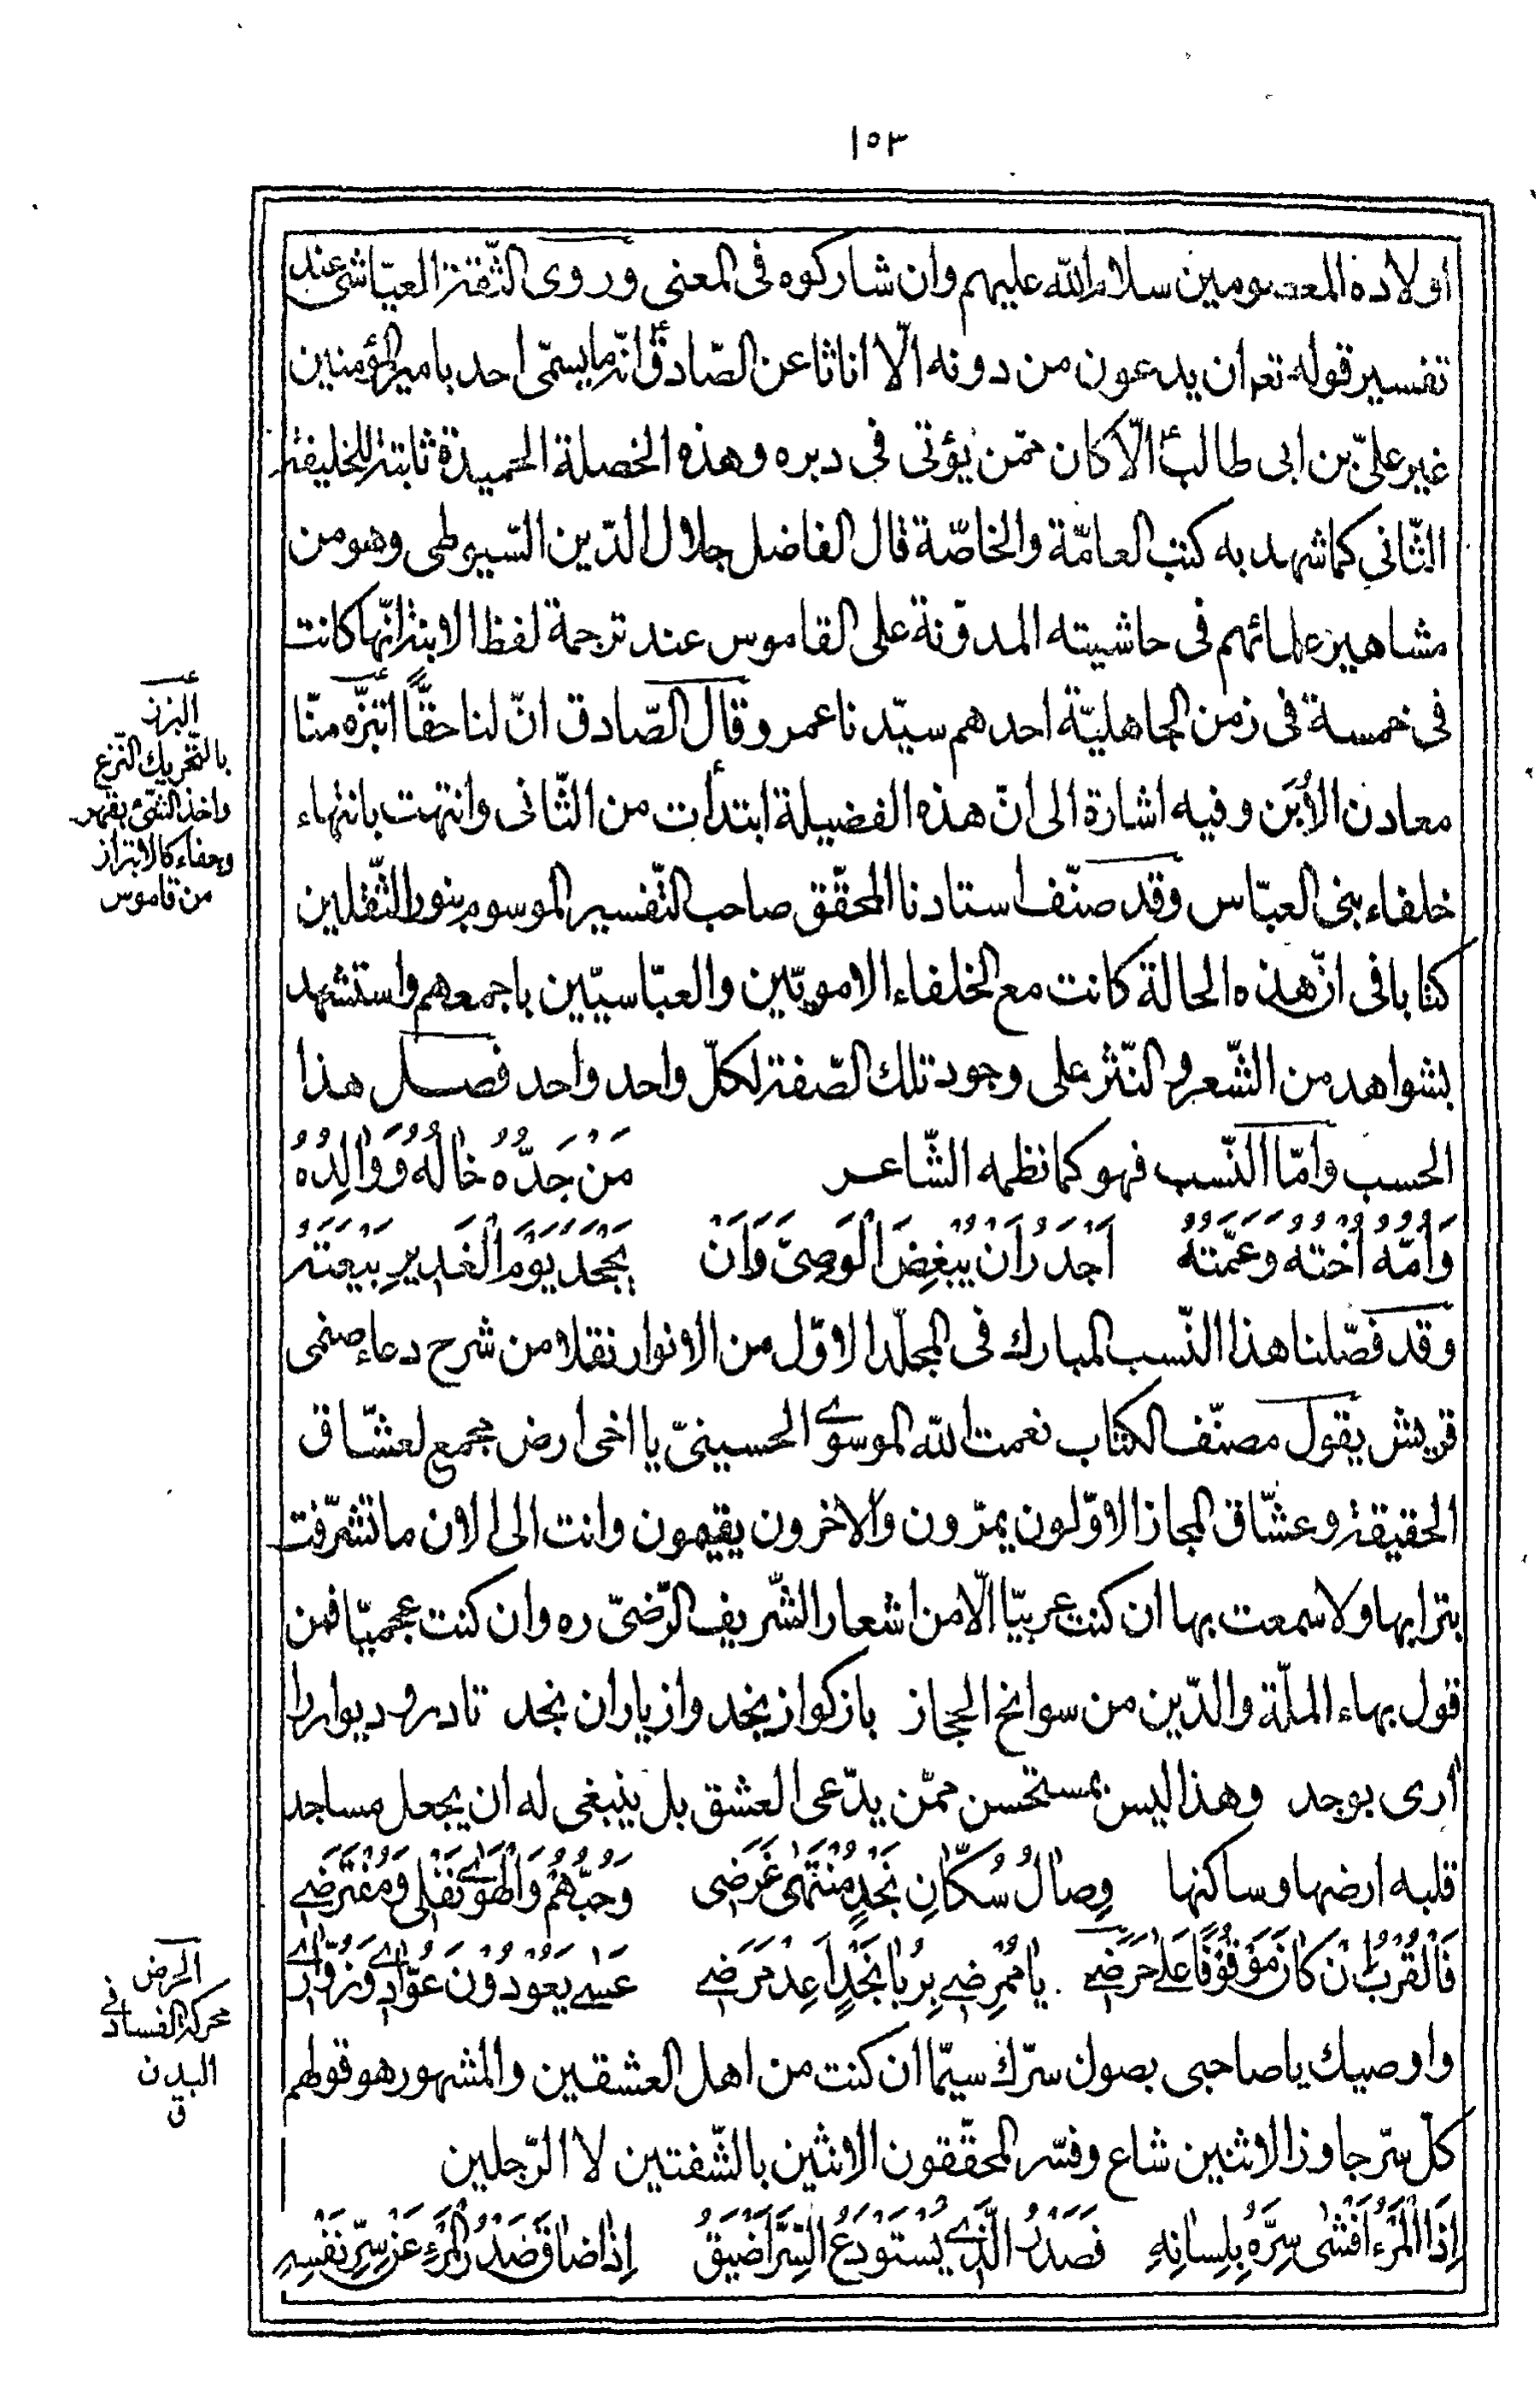 ١٥٣
أولاده المعصومين سلام الله عليهم وان شاركوه فى المعنى وروى الثّقة العيّاشى عند
تفسير قوله تعم ان يدعون من دونه الّا اناثا عن الصّادق ع انّه ما يسمّى احد بامير المؤمنين
غير علىّ بن ابى طالب ع الّا كان ممّن يؤتى فى دبره وهذه الخصلة الحميدة ثابتة للخليفة
الثّانى كما شهد به كتب العامّة والخاصّة قال الفاضل جلال الدّين السّيوطى وهو من
مشاهير علمائهم فى حاشيته المدوّنة على القاموس عند ترجمة لفظ الابنة انّها كانت
فى خمسة فى زمن الجاهليّة احدهم سيّدنا عمر وقال الصّادق انّ لنا حقّاً ابتزّه منّا
معادن الأُبَن وفيه اشارة الى انّ هذه الفضيلة ابتدأت من الثّانى وانتهت بانتهاء
خلفاء بنى العبّاس وقد صنّف استادنا المحقّق صاحب التّفسير الموسوم بنور الثّقلين
كتابا فى انّ هذه الحالة كانت مع الخلفاء الامويّين والعبّاسيّين باجمعهم واستشهد
بشواهد من الشّعر والنّثر على وجود تلك الصّفة لكلّ واحد واحد فصل هذا
الحسب وامّا النّسب فهو كما نظمه الشّاعر مَنْ جَدُّهُ خالُهُ وَوالِدُهُ
وَاُمُّهُ اُخْتُهُ وَعَمَّتُهُ اَجْدَرُ اَنْ يُبْغِضَ الْوَصِىَّ وَاَنْ يَجْحَدَ يَوْمَ الْغَدِيرِ بَيْعَتَهُ
وقد فصّلنا هذا النّسب المبارك فى المجلّد الاوّل من الانوار نقلا من شرح دعاء صنمى
قريش يقول مصنّف الكتاب نعمت الله الموسوى الحسينىّ يا اخى ارض مجمع لعشّاق
الحقيقة وعشّاق المجاز الاوّلون يمرّون والاخرون يقيمون وانت الى الان ما تشرّفت
بترابها ولا سمعت بها ان كنت عربيّا الّا من اشعار الشّريف الرّضىّ ره وان كنت عجميّا فمن
قول بهاء الملّة والدّين من سوانح الحجاز بازكو از نجد واز ياران نجد تا در وديوار را
أرى بوجد وهذا ليس بمستحسن ممّن يدّعى العشق بل ينبغى له ان يجعل مساجد
قلبه ارضها وساكنها وِصالُ سُكّانِ نَجْدٍ مُنْتَهٰى غَرَضِى وَحُبُّهُمْ وَالْهَوٰى نَفْلِى وَمُفْتَرَضِى
فَالْقُرْبُ اِنْ كانَ مَوْقُوفًا عَلىٰ حَرَضِى يا مُمْرِضِى بِرُبا نَجْدٍ اَعِدْ مَرَضِى عَسٰى يَعُودُونَ عُوّادِى وَزُوّارِى
واوصيك يا صاحبى بصون سرّك سيّما ان كنت من اهل العشقين والمشهور هو قولهم
كلّ سرّ جاوز الاثنين شاع وفسّر المحقّقون الاثنين بالشّفتين لا الرّجلين
اِذَا الْمَرْءُ اَفْشٰى سِرَّهُ بِلِسانِهِ فَصَدْرُ الَّذِى يُسْتَوْدَعُ السِّرَّ اَضْيَقُ اِذا ضاقَ صَدْرُ الْمَرْءِ عَنْ سِرِّ نَفْسِهِ
البزز
بالتّحريك النّزع
واخذ الشّئ بقهر
وجفاء كالابتزاز
من قاموس
الحرض
محركة الفساد فى
البدن
ق